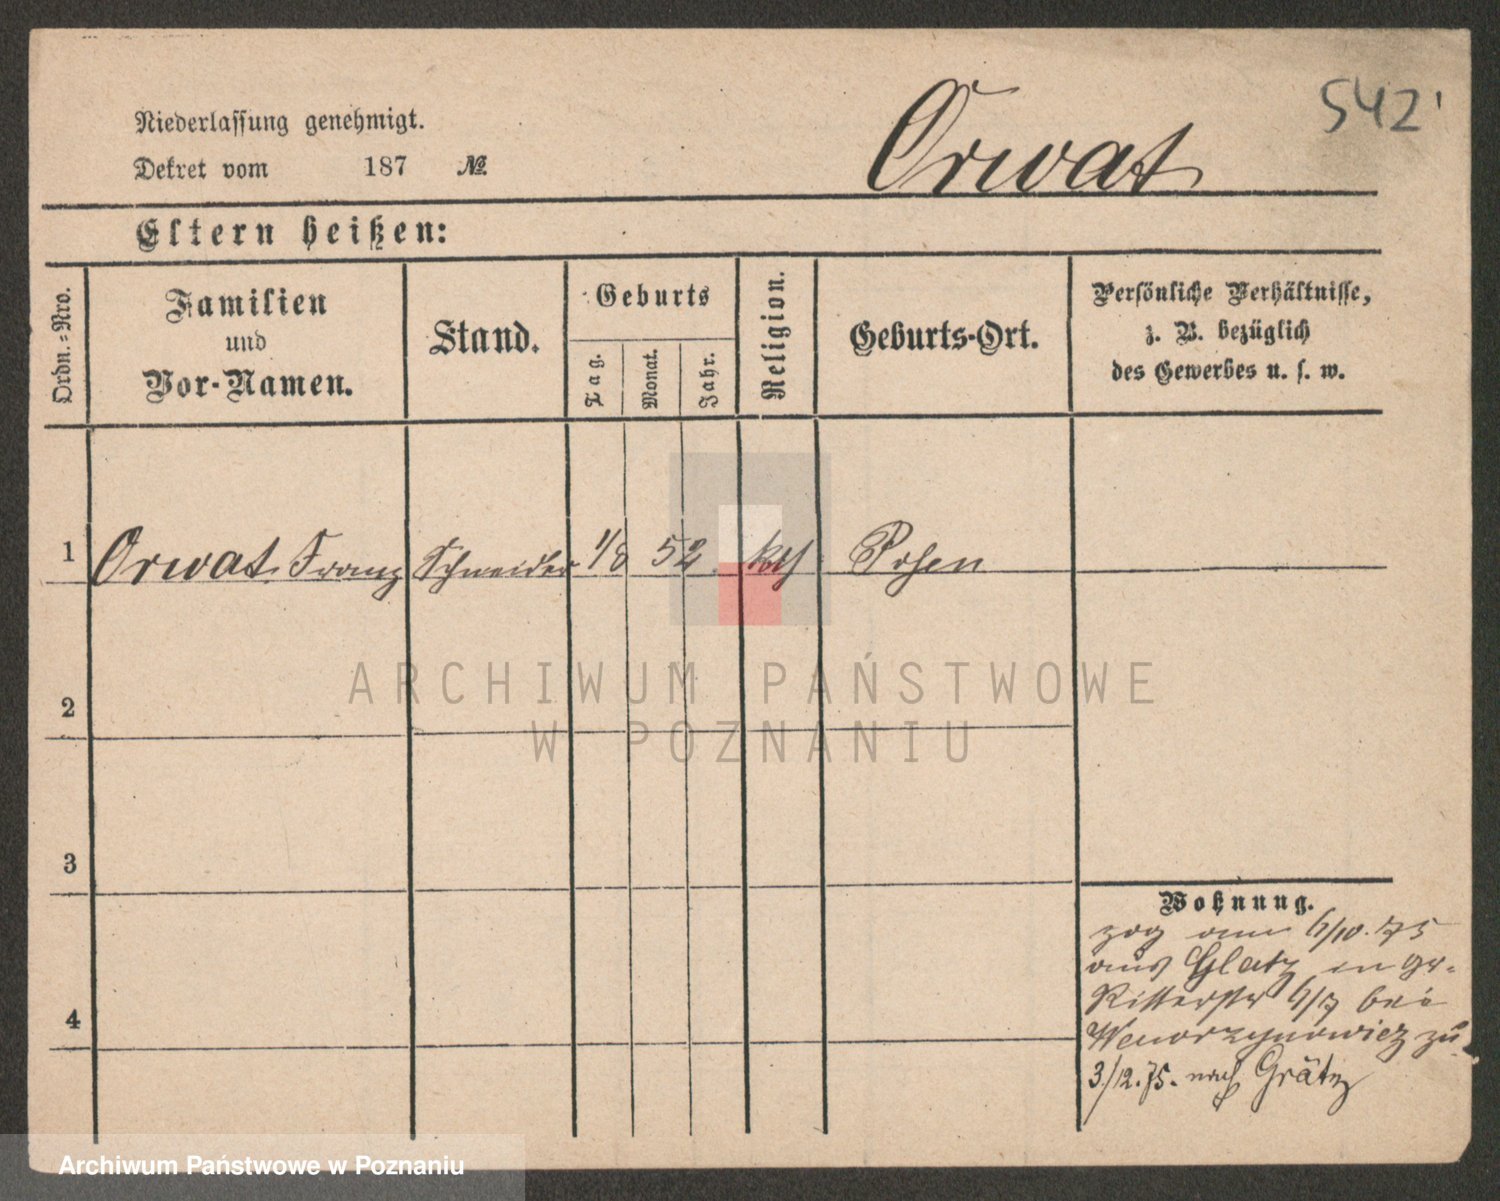 542'
Niederlassung genehmigt.
Orwat
Dekret vom 187 №
Eltern heißen:
Ordn.-Nro.
Familien
und
Vor-Namen.
Stand.
Geburts
Tag.
Monat.
Jahr.
Religion.
Geburts-Ort.
Persönliche Verhältnisse,
z. B. bezüglich
des Gewerbes u. s. w.
1 Orwat Franz Schneider 1/8 52. kth Posen
2
3
4
Wohnung.
zog am 6/10. 75
aus Glatz in gr.
Ritterstr 6/7 bei
zu
3./12.75. nach Grätz
ARCHIWUM PAŃSTWOWE
W POZNANIU
Archiwum Państwowe w Poznaniu